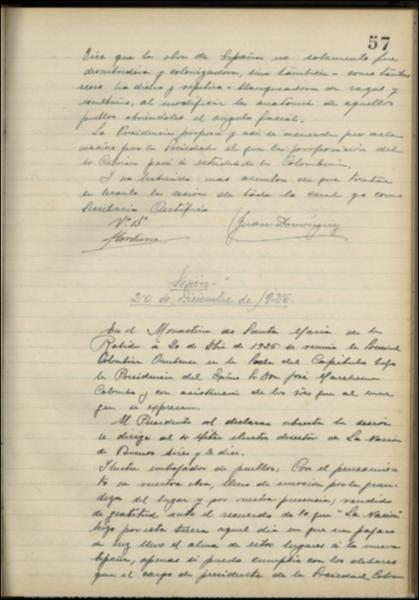 57
Dice que la obra de España no solamente fue
descubridora y colonizadora, sino también - como tantas
veces ha dicho y repetido - blanqueadora de razas y
al modificar la anatomía de aquellos
pueblos abriéndoles el angulo facial.
La Presidencia propone y asi se acuerda por acla
macion por la Sociedad el que la proposicion del
Sr Cebrián pase á estudio de la Colombina.
Y no habiendo mas asuntos de que tratar
se levanta la sesion de todo lo cual yo como
Secretario Certifico
Vº Bº
Marchena
Juan Dominguez
Sesión
20 de Diciembre de 1926.
En el Monasterio de Santa Maria de la
Rabida á 20 de Dbre de 1926 se reunio la Sociedad
Colombina Onubense en la Sala del Capitulo bajo
la Presidencia del Exmo Sr Don José Marchena
Colombo y con asistencia de los Sres que al mar
gen se expresan.
El Presidente al declarar abierta la sesion
se dirige al Sr Mitre ilustre director de La Nación
de Buenos Aires y le dice.
Ilustre embajador de pueblos: Con el pensamien
to en vuestra obra, lleno de emocion por la gran
deza del lugar y por vuestra presencia; rendido
de gratitud ante el recuerdo de lo que "La Nación"
hizo por esta tierra aquel dia en que un pajaro
de luz llevó el alma de estos lugares á la nueva
España, apenas si puedo cumplir con los deberes
que el cargo de presidente de la Sociedad Colom